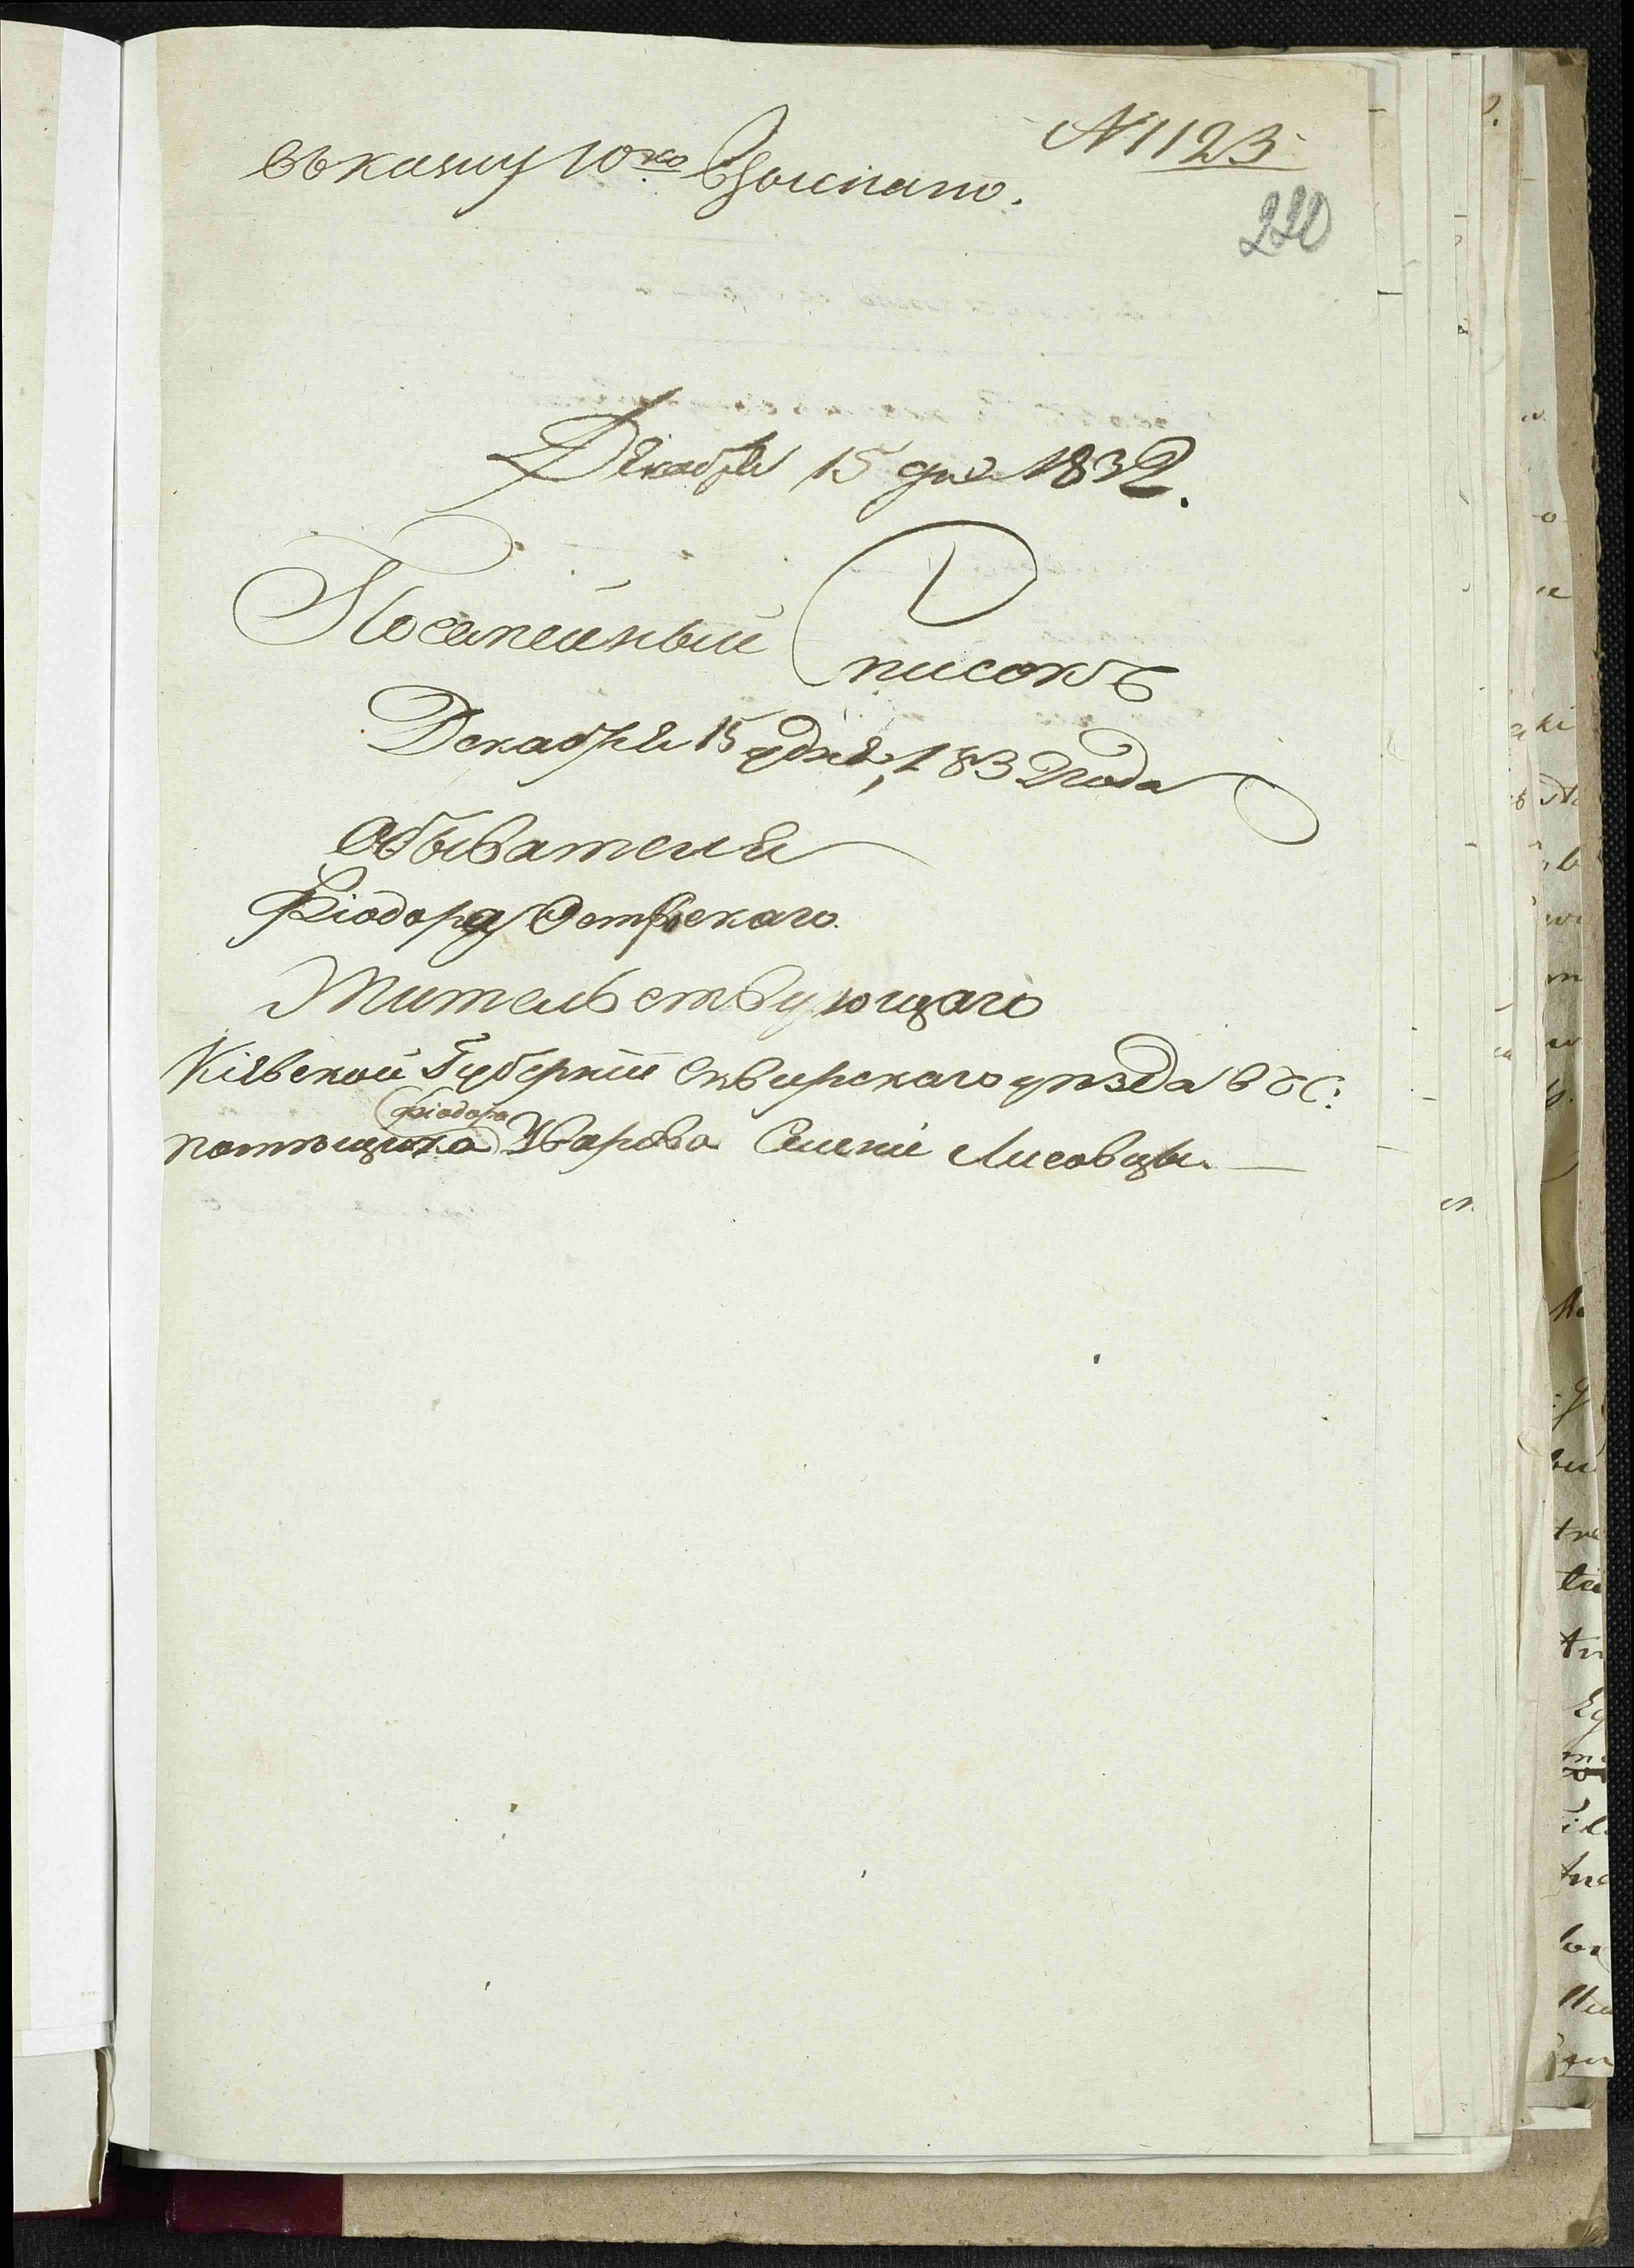 № 1123
220
Декабря 15 дня 1832.
Посемейный Списокъ
Декабря 15 дня, 1832 года
Обывателя
Фіодора Островскаго
Жительствующаго
Кіевской Губерніи Сквирскаго уезда в ъ С:
Фіодора
помещика Уварова Селеніи Лисовцы.